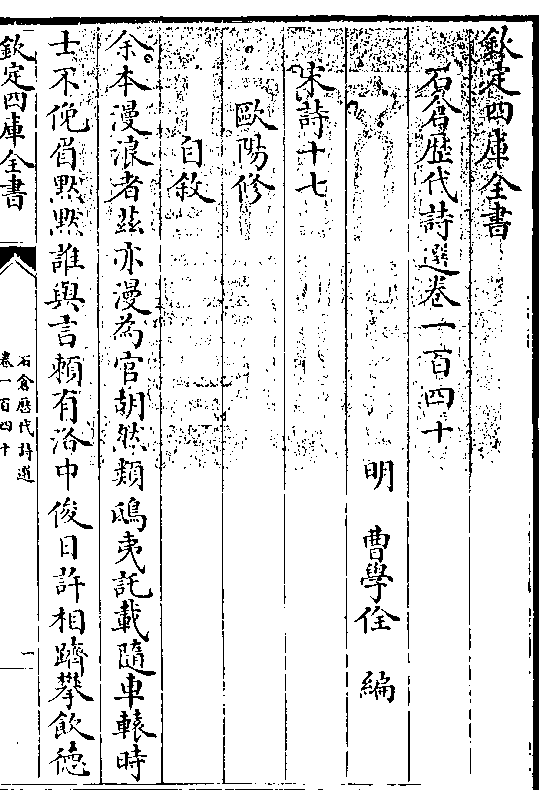 欽定四庫全書
石倉歴代詩選卷一百四十
明 曹學佺 編
宋詩十七
歐陽修
自敘
余本漫浪者茲亦漫為官胡然類鴟夷託載隨車轅時
士不俛眉黙黙誰與言頼有洛中俊日許相躋攀飲德
欽定四庫全書
石倉歴代詩選
卷一百四十
一